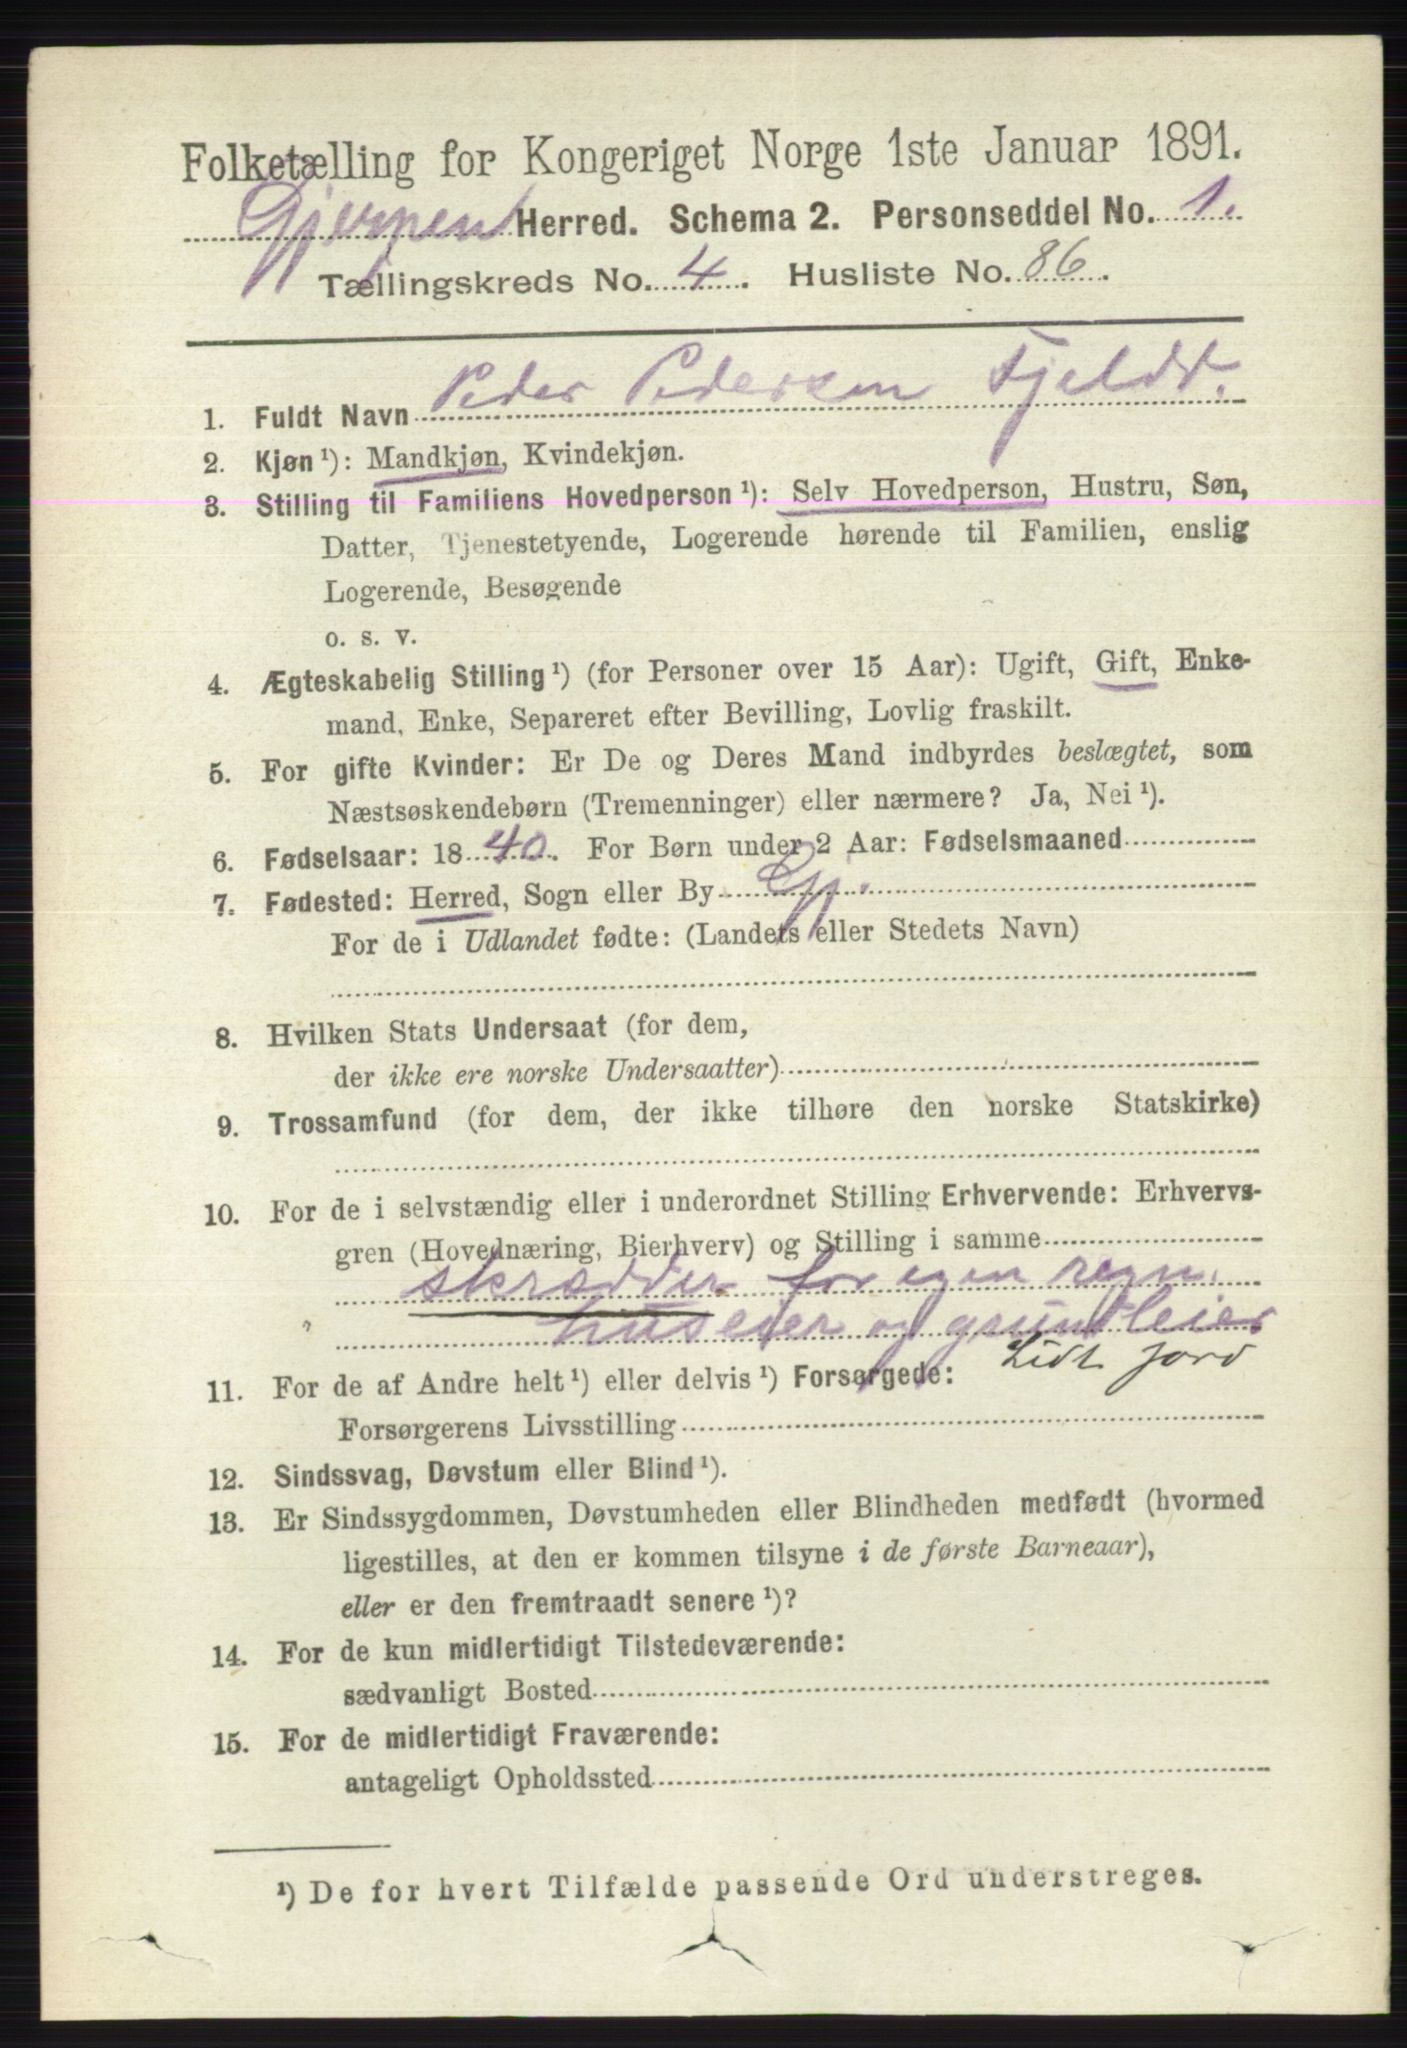 Folketælling for Kongeriget Norge 1ste Januar 1891.
Gjerpen Herred. Schema 2. Personseddel No. 1.
Tællingskreds No. 4. Husliste No. 86.
1. Fuldt Navn Peder Pedersen Fjeldt.
2. Kjøn ¹): Mandkjøn, Kvindekjøn.
3. Stilling til Familiens Hovedperson ¹): Selv Hovedperson, Hustru, Søn,
Datter, Tjenestetyende, Logerende hørende til Familien, enslig
Logerende, Besøgende
o. s. v.
4. Ægteskabelig Stilling ¹) (for Personer over 15 Aar): Ugift, Gift, Enke-
mand, Enke, Separeret efter Bevilling, Lovlig fraskilt.
5. For gifte Kvinder: Er De og Deres Mand indbyrdes beslægtet, som
Næstsøskendebørn (Tremenninger) eller nærmere? Ja, Nei ¹).
6. Fødselsaar: 1840. For Børn under 2 Aar: Fødselsmaaned
7. Fødested: Herred, Sogn eller By Gj.
For de i Udlandet fødte: (Landets eller Stedets Navn)
8. Hvilken Stats Undersaat (for dem,
der ikke ere norske Undersaatter)
9. Trossamfund (for dem, der ikke tilhøre den norske Statskirke)
10. For de i selvstændig eller i underordnet Stilling Erhvervende: Erhvervs-
gren (Hovednæring, Bierhverv) og Stilling i samme
skrædder for egen regn.
huseier og gruntleier
Lidt jord
11. For de af Andre helt ¹) eller delvis ¹) Forsørgede:
Forsørgerens Livsstilling
12. Sindssvag, Døvstum eller Blind ¹).
13. Er Sindssygdommen, Døvstumheden eller Blindheden medfødt (hvormed
ligestilles, at den er kommen tilsyne i de første Barneaar),
eller er den fremtraadt senere ¹)?
14. For de kun midlertidigt Tilstedeværende:
sædvanligt Bosted
15. For de midlertidigt Fraværende:
antageligt Opholdssted
¹) De for hvert Tilfælde passende Ord understreges.